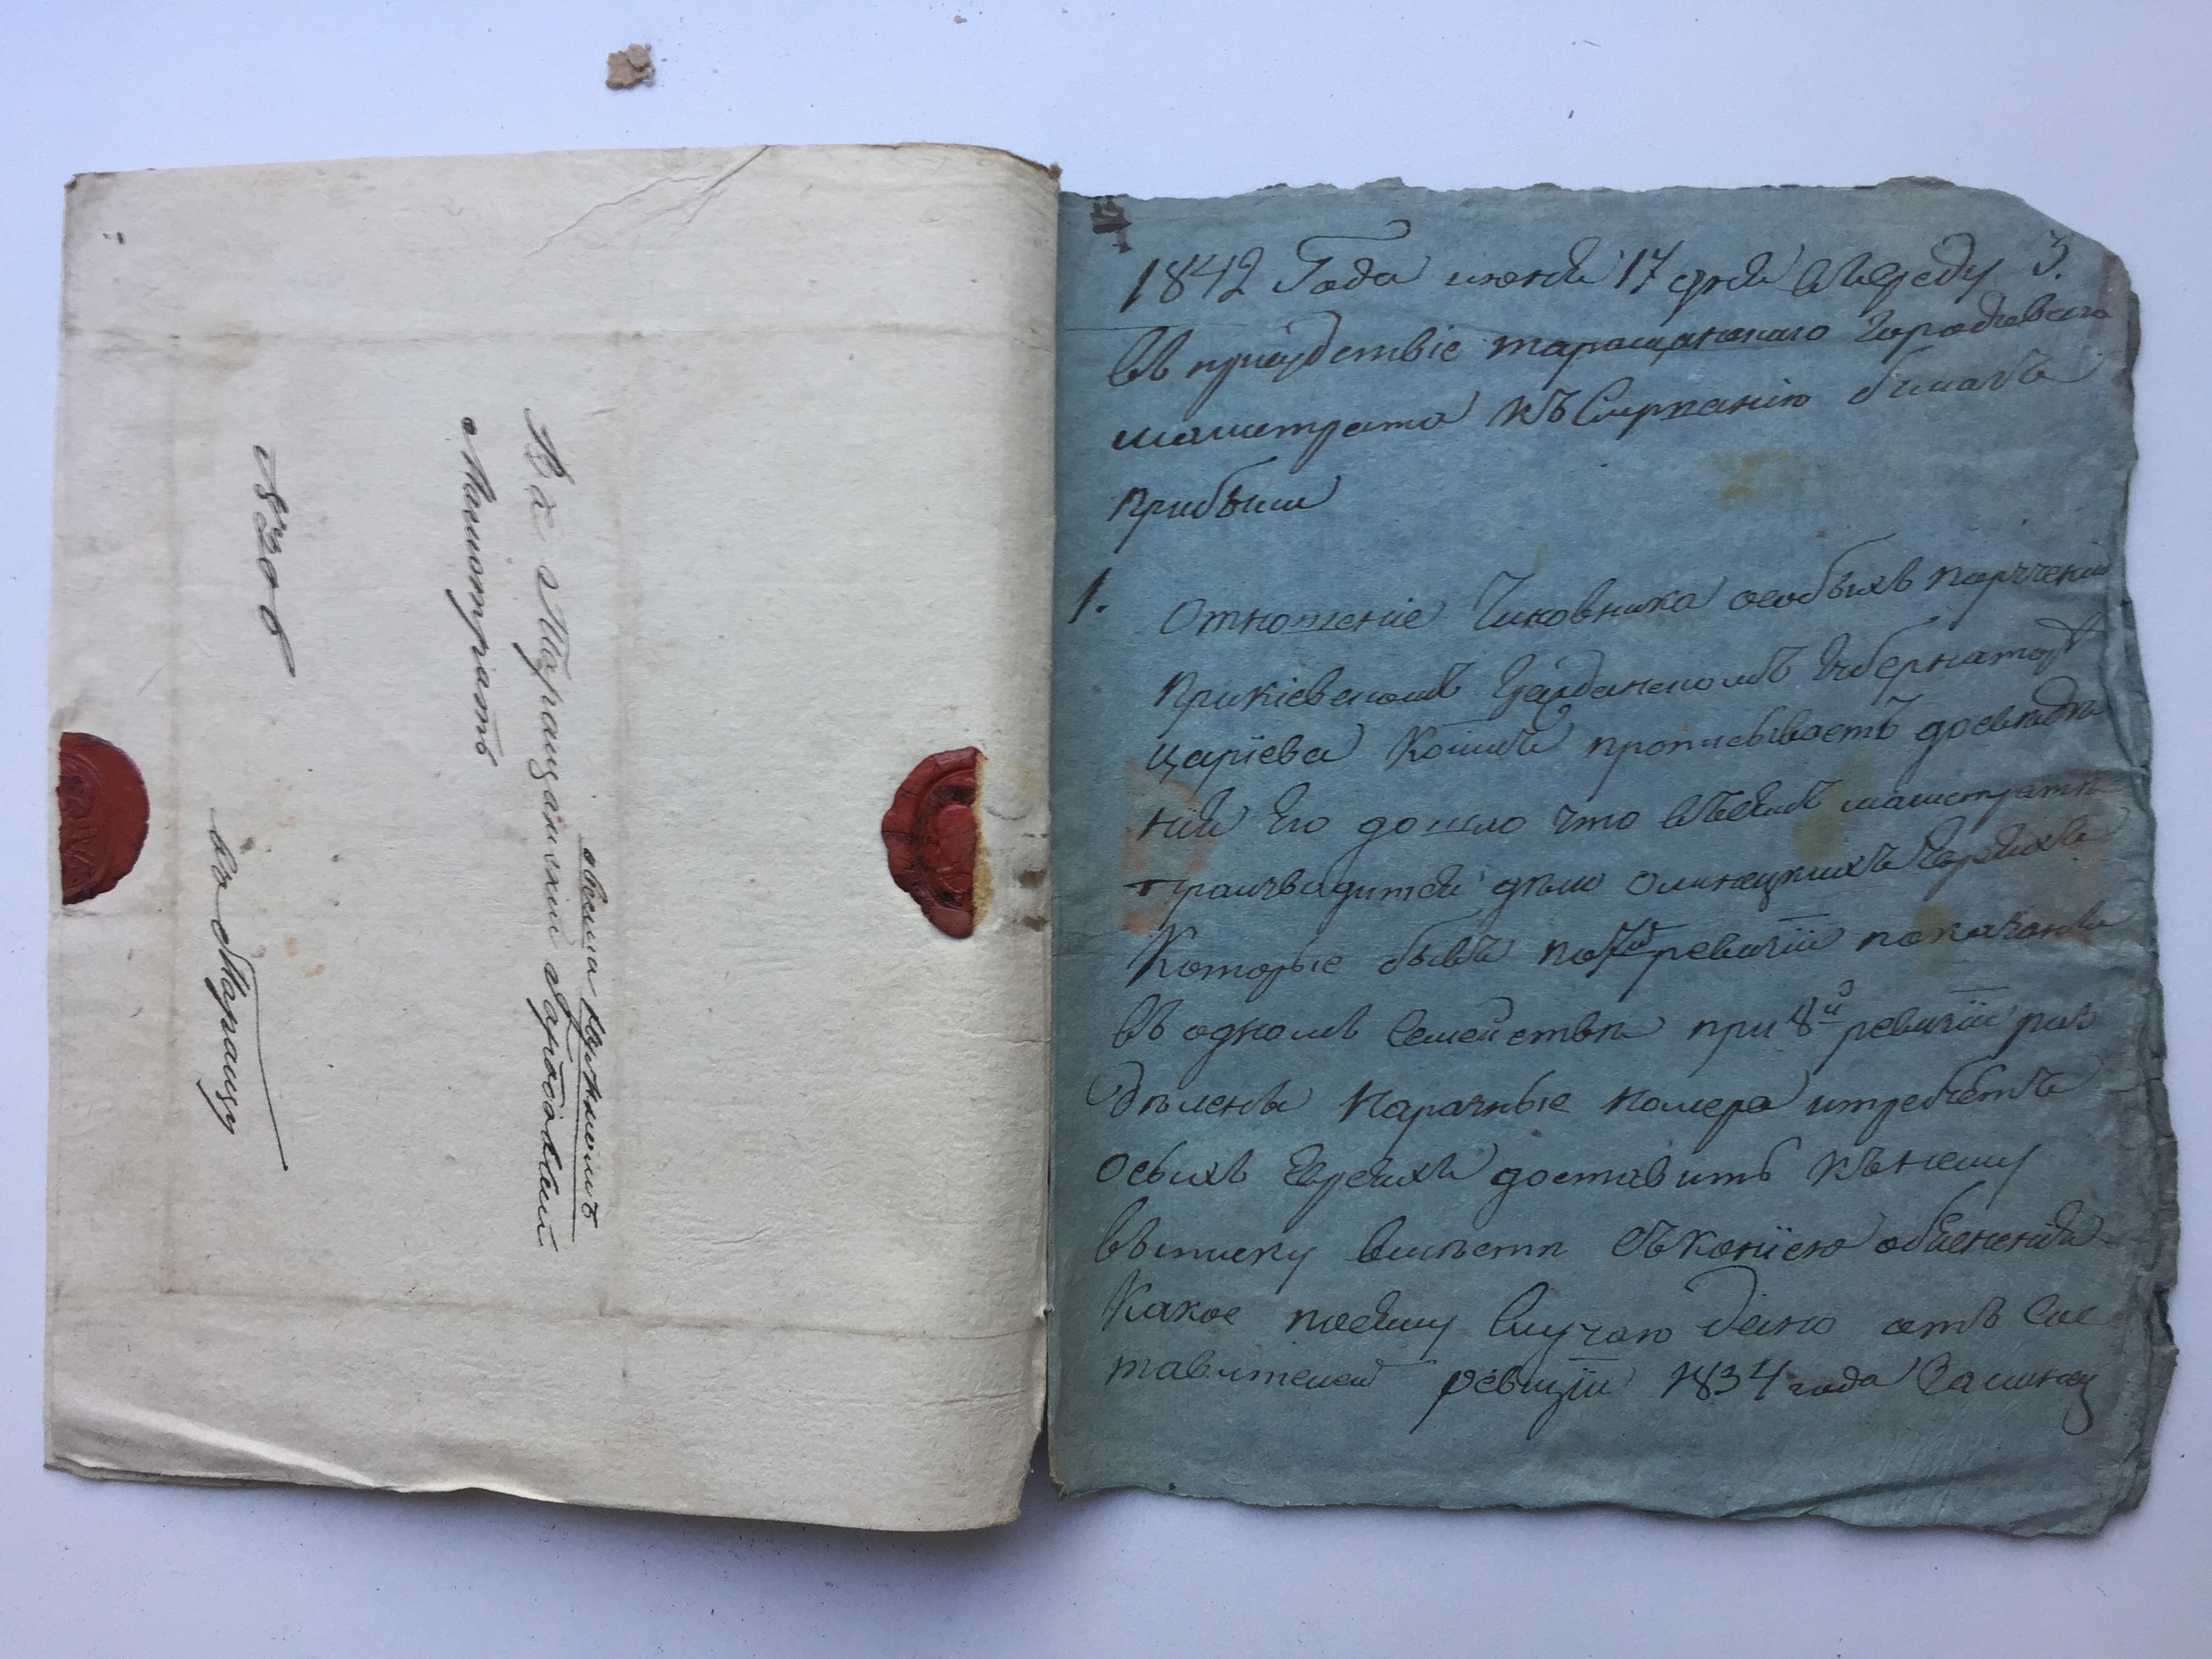 о взысканіи
В х. Таращанскій Городовый
Магистратъ
№ 8306
въ Таращу
3.
1842 Года июня 17 дня въ среду
Въ присудствіе таращанскаго городоваго
магистрата къ Слушанію бумагъ
прибыли
1. Отношеніе Чиновника особыхъ порученій
при Кіевскомъ Гражданскомъ Губернаторѣ
Царіева коимъ прописываетъ до свѣдѣ
нія Его дошло что въ семъ магистратѣ
производится дѣло Олинецкихъ Евреяхъ
Которые бывъ по 7й ревизіи показаны
въ одномъ Семействѣ при 8й ревизіи раз
дѣлены на разные номера и требуетъ
о сыхъ Евреяхъ доставить къ нему
выписку вмѣстѣ съ копіею объясненія
Какое по сему Случаю дано отъ Сос
тавителей ревизіи 1834 года